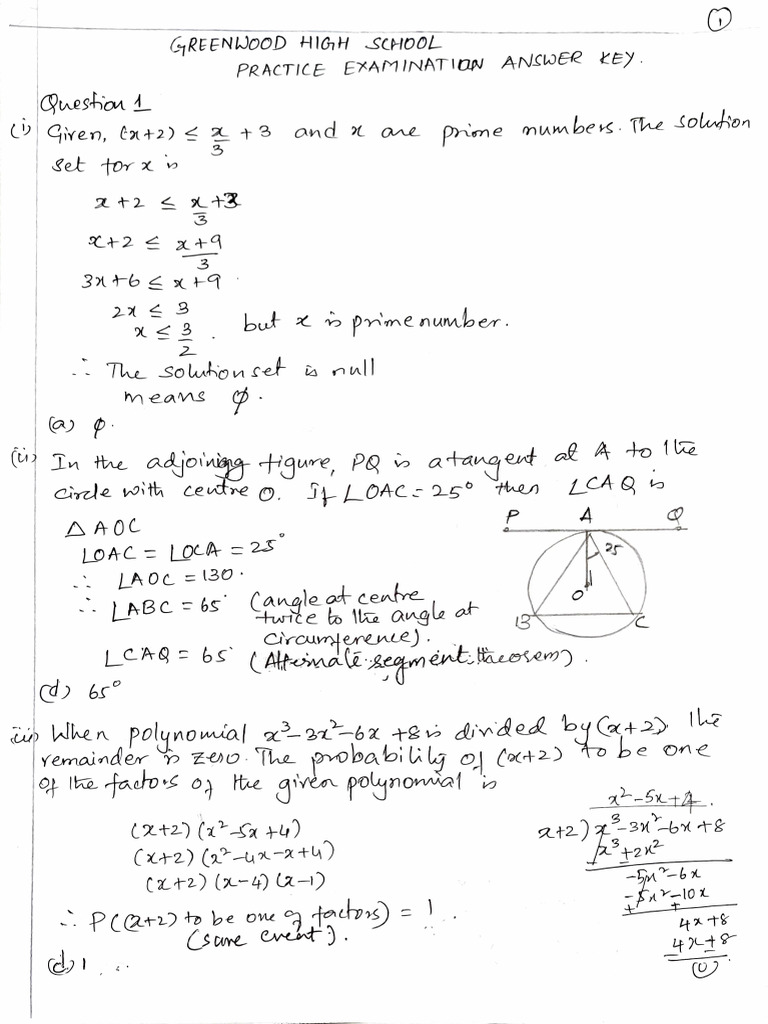 ①
GREENWOOD HIGH SCHOOL
PRACTICE EXAMINATION ANSWER KEY.
Question 1
(i) Given, (x+2) ≤ x/3 + 3 and x are prime numbers. The solution
set for x is
x+2 ≤ x/3 + 3
x+2 ≤ (x+9)/3
3x+6 ≤ x+9
2x ≤ 3
x ≤ 3/2 . but x is prime number.
∴ The solution set is null
means φ.
(a) φ.
(ii) In the adjoining figure, PQ is a tangent at A to the
circle with centre O. If ∠OAC = 25° then ∠CAQ is
P A Q
25
O
B C
△ AOC
∠OAC = ∠OCA = 25°
∴ ∠AOC = 130.
∴ ∠ABC = 65° (angle at centre
twice to the angle at
circumference).
∠CAQ = 65° (Alternate segment theorem).
(d) 65°
iii) When polynomial x³-3x²-6x+8 is divided by (x+2). The
remainder is zero. The probability of (x+2) to be one
of the factors of the given polynomial is
(x+2) (x²-5x+4)
(x+2) (x²-4x-x+4)
(x+2) (x-4) (x-1)
∴ P((x+2) to be one of factors) = 1.
(sure event).
(d) 1 ...
x²-5x+4.
x+2) x³-3x²-6x+8
x³+2x²
-5x²-6x
-5x²-10x
4x+8
4x+8
(0).